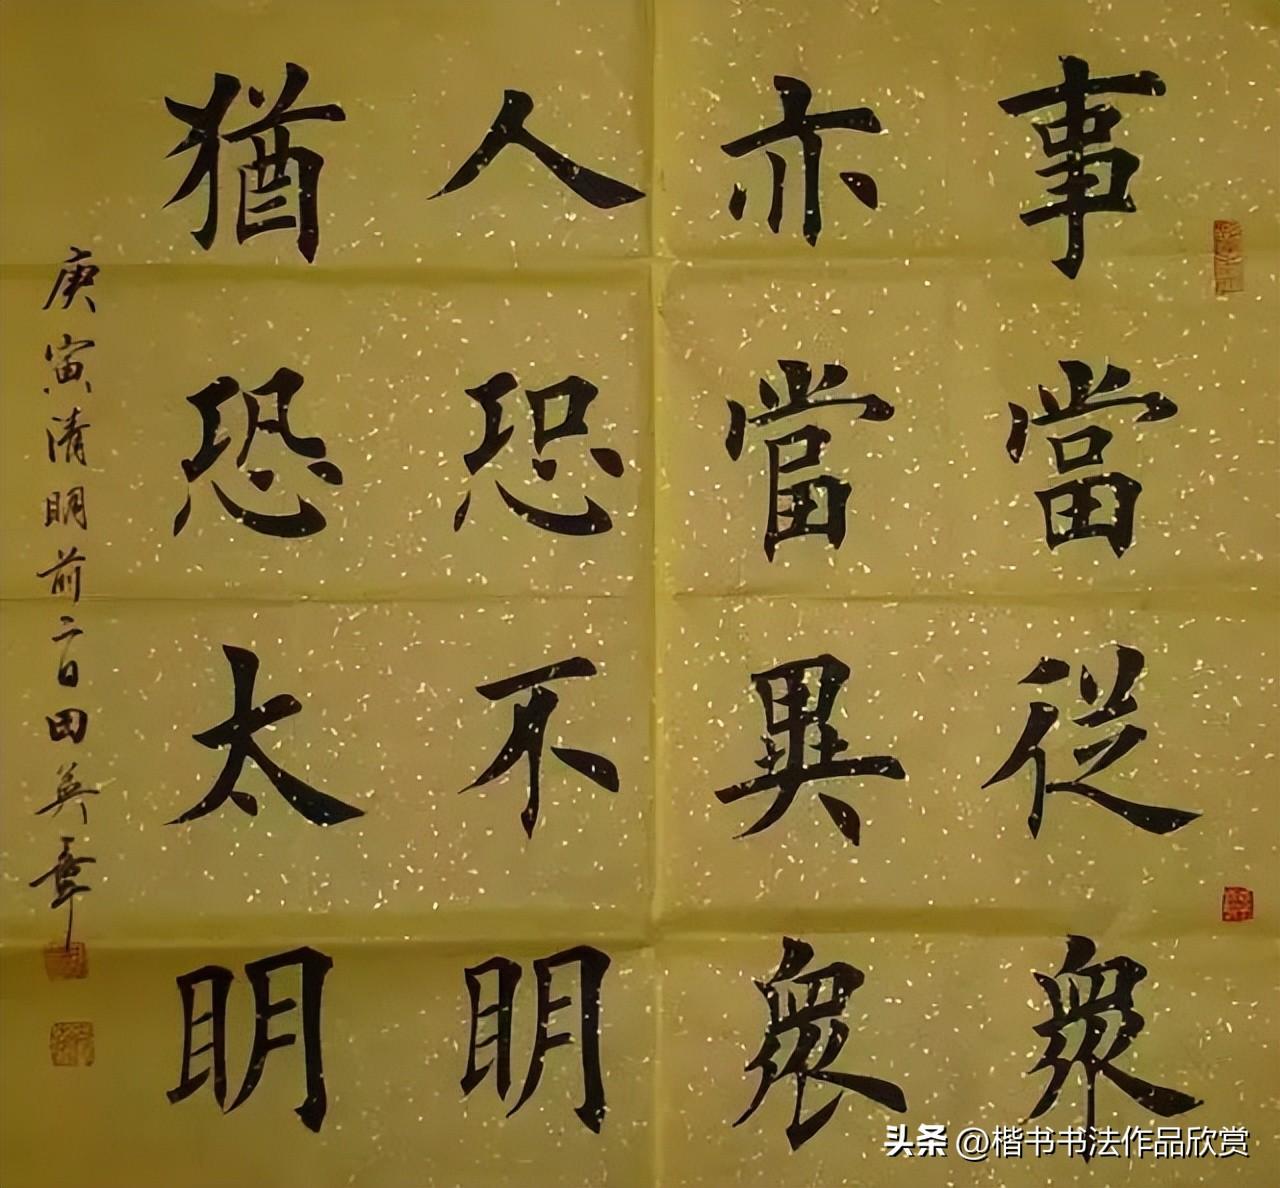 事當從衆
亦當異衆
人恐不明
猶恐太明
庚寅清明前二日田英章
头条 @楷书书法作品欣赏